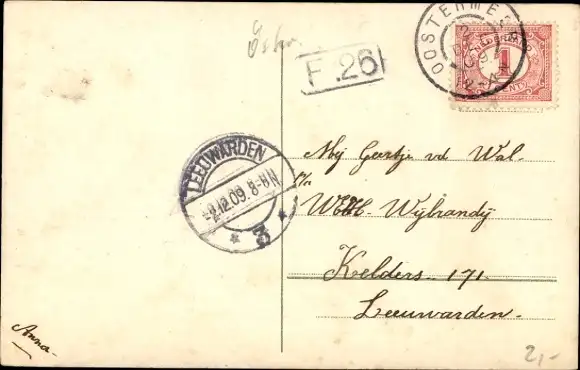 F.26
OOSTERMEER
NEDERLAND
1
CENT
LEEUWARDEN
2.12.09. 8-8N
* 3 *
Mej Geertje vd Wal.
p/a
Wybrandij
Kelders. 171.
Leeuwarden.
Anna.
2,-